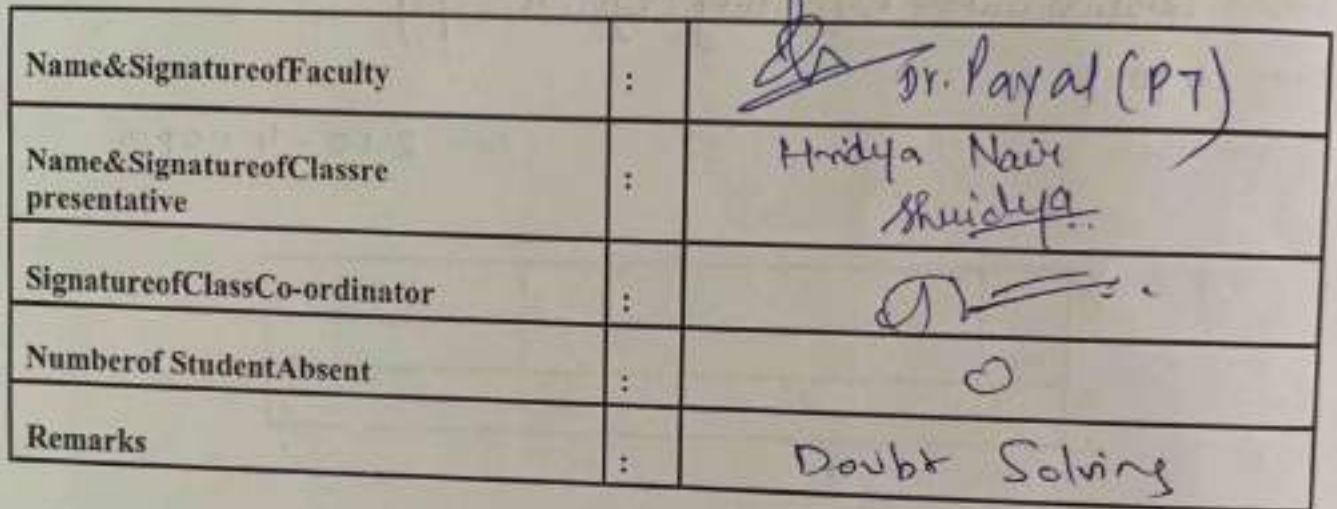 Name&SignatureofFaculty : Dr. Payal (P7)
Name&SignatureofClassre : Hridya Nair
presentative
SignatureofClassCo-ordinator :
Numberof StudentAbsent : 0
Remarks : Doubt Solving